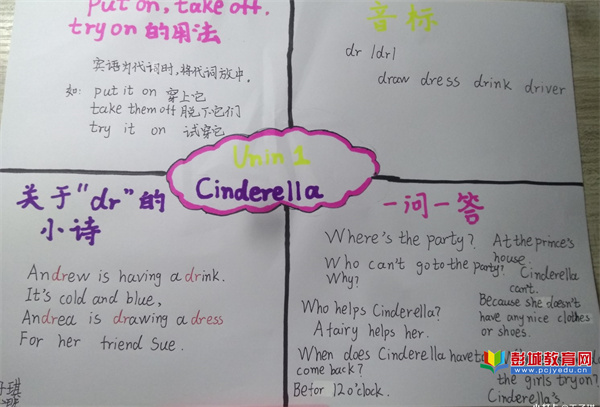 put on, take off.
try on 的用法
宾语为代词时,将代词放中.
如: put it on 穿上它
take them off 脱下它们
try it on 试穿它
音标
dr /dr/
draw dress drink driver
Unin 1
Cinderella
关于"dr"的
小诗
Andrew is having a drink.
It's cold and blue,
Andrea is drawing a dress
For her friend Sue.
一问一答
Where's the party? At the prince's
house.
Who can't go to the party? Cinderella
can't.
Why? Because she doesn't
have any nice clothes
or shoes.
Who helps Cinderella?
A fairy helps her.
When does Cinderella have to
come back?
Befor 12 o'clock.
the girls try on?
Cinderella's
彭城教育网
www.pcjyedu.cn